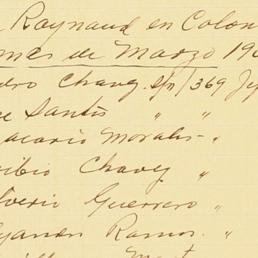 Raynaud en Colon
mes de Marzo 190
dro Chavez S/p 1369 Jy
e Santis " "
acario Morales "
ibio Chavez "
lverio Guerrero "
yandro Ramos "